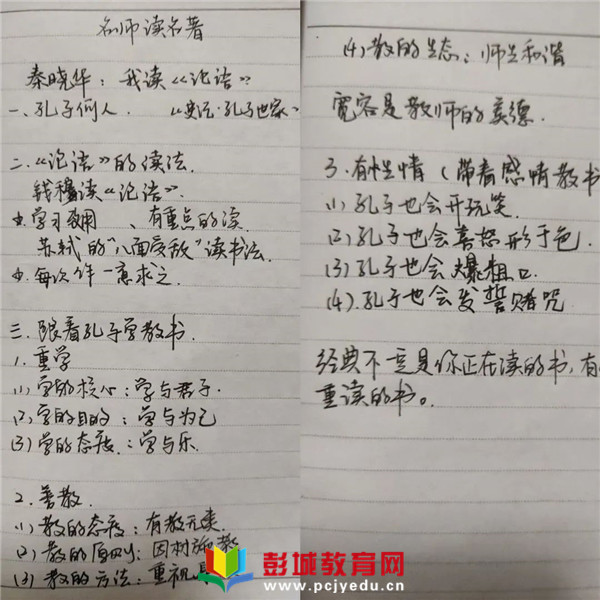 名师读名著
秦晓华：我读《论语》
一、孔子何人. 《史记·孔子世家》
二.《论语》的读法.
钱穆读《论语》.
学习 、有重点的读.
苏轼的"八面受敌"读书法.
每次作一意求之.
三.跟着孔子学教书.
1.重学
(1)学的核心：学与君子.
(2)学的目的：学与为己
(3)学的态度：学与乐.
2.善教.
(1)教的态度：有教无类.
(2)教的原则：因材施教
(3)教的方法：重视
(4)教的生态：师生和谐
宽容是教师的美德.
3.有性情(带着感情教书
(1)孔子也会开玩笑.
(2)孔子也会喜怒形于色.
(3)孔子也会爆粗口.
(4).孔子也会发誓赌咒
经典不一定是你正在读的书,有
重读的书。
彭城教育网
www.pcjyedu.cn